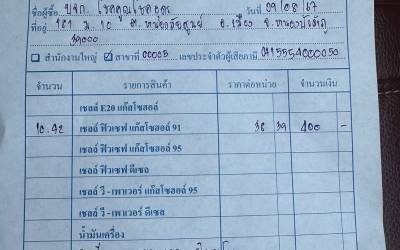 ชื่อผู้ซื้อ บจก. โชคคูณโชคอุดร วันที่ 09/08/67
ที่อยู่ 181 ม.10 ต.หนองภัยศูนย์ อ.เมือง จ.หนองบัวลำภู
39000
สำนักงานใหญ่ ✓ สาขาที่ 00003 เลขประจำตัวผู้เสียภาษี
จำนวน รายการสินค้า ราคาต่อหน่วย จำนวนเงิน
เชลล์ E20 แก๊สโซฮอล์
10.42 เชลล์ ฟิวเซฟ แก๊สโซฮอล์ 91 38 39 400 -
เชลล์ ฟิวเซฟ แก๊สโซฮอล์ 95
เชลล์ ฟิวเซฟ ดีเซล
เชลล์ วี - เพาเวอร์ แก๊สโซฮอล์ 95
เชลล์ วี - เพาเวอร์ ดีเซล
น้ำมันเครื่อง